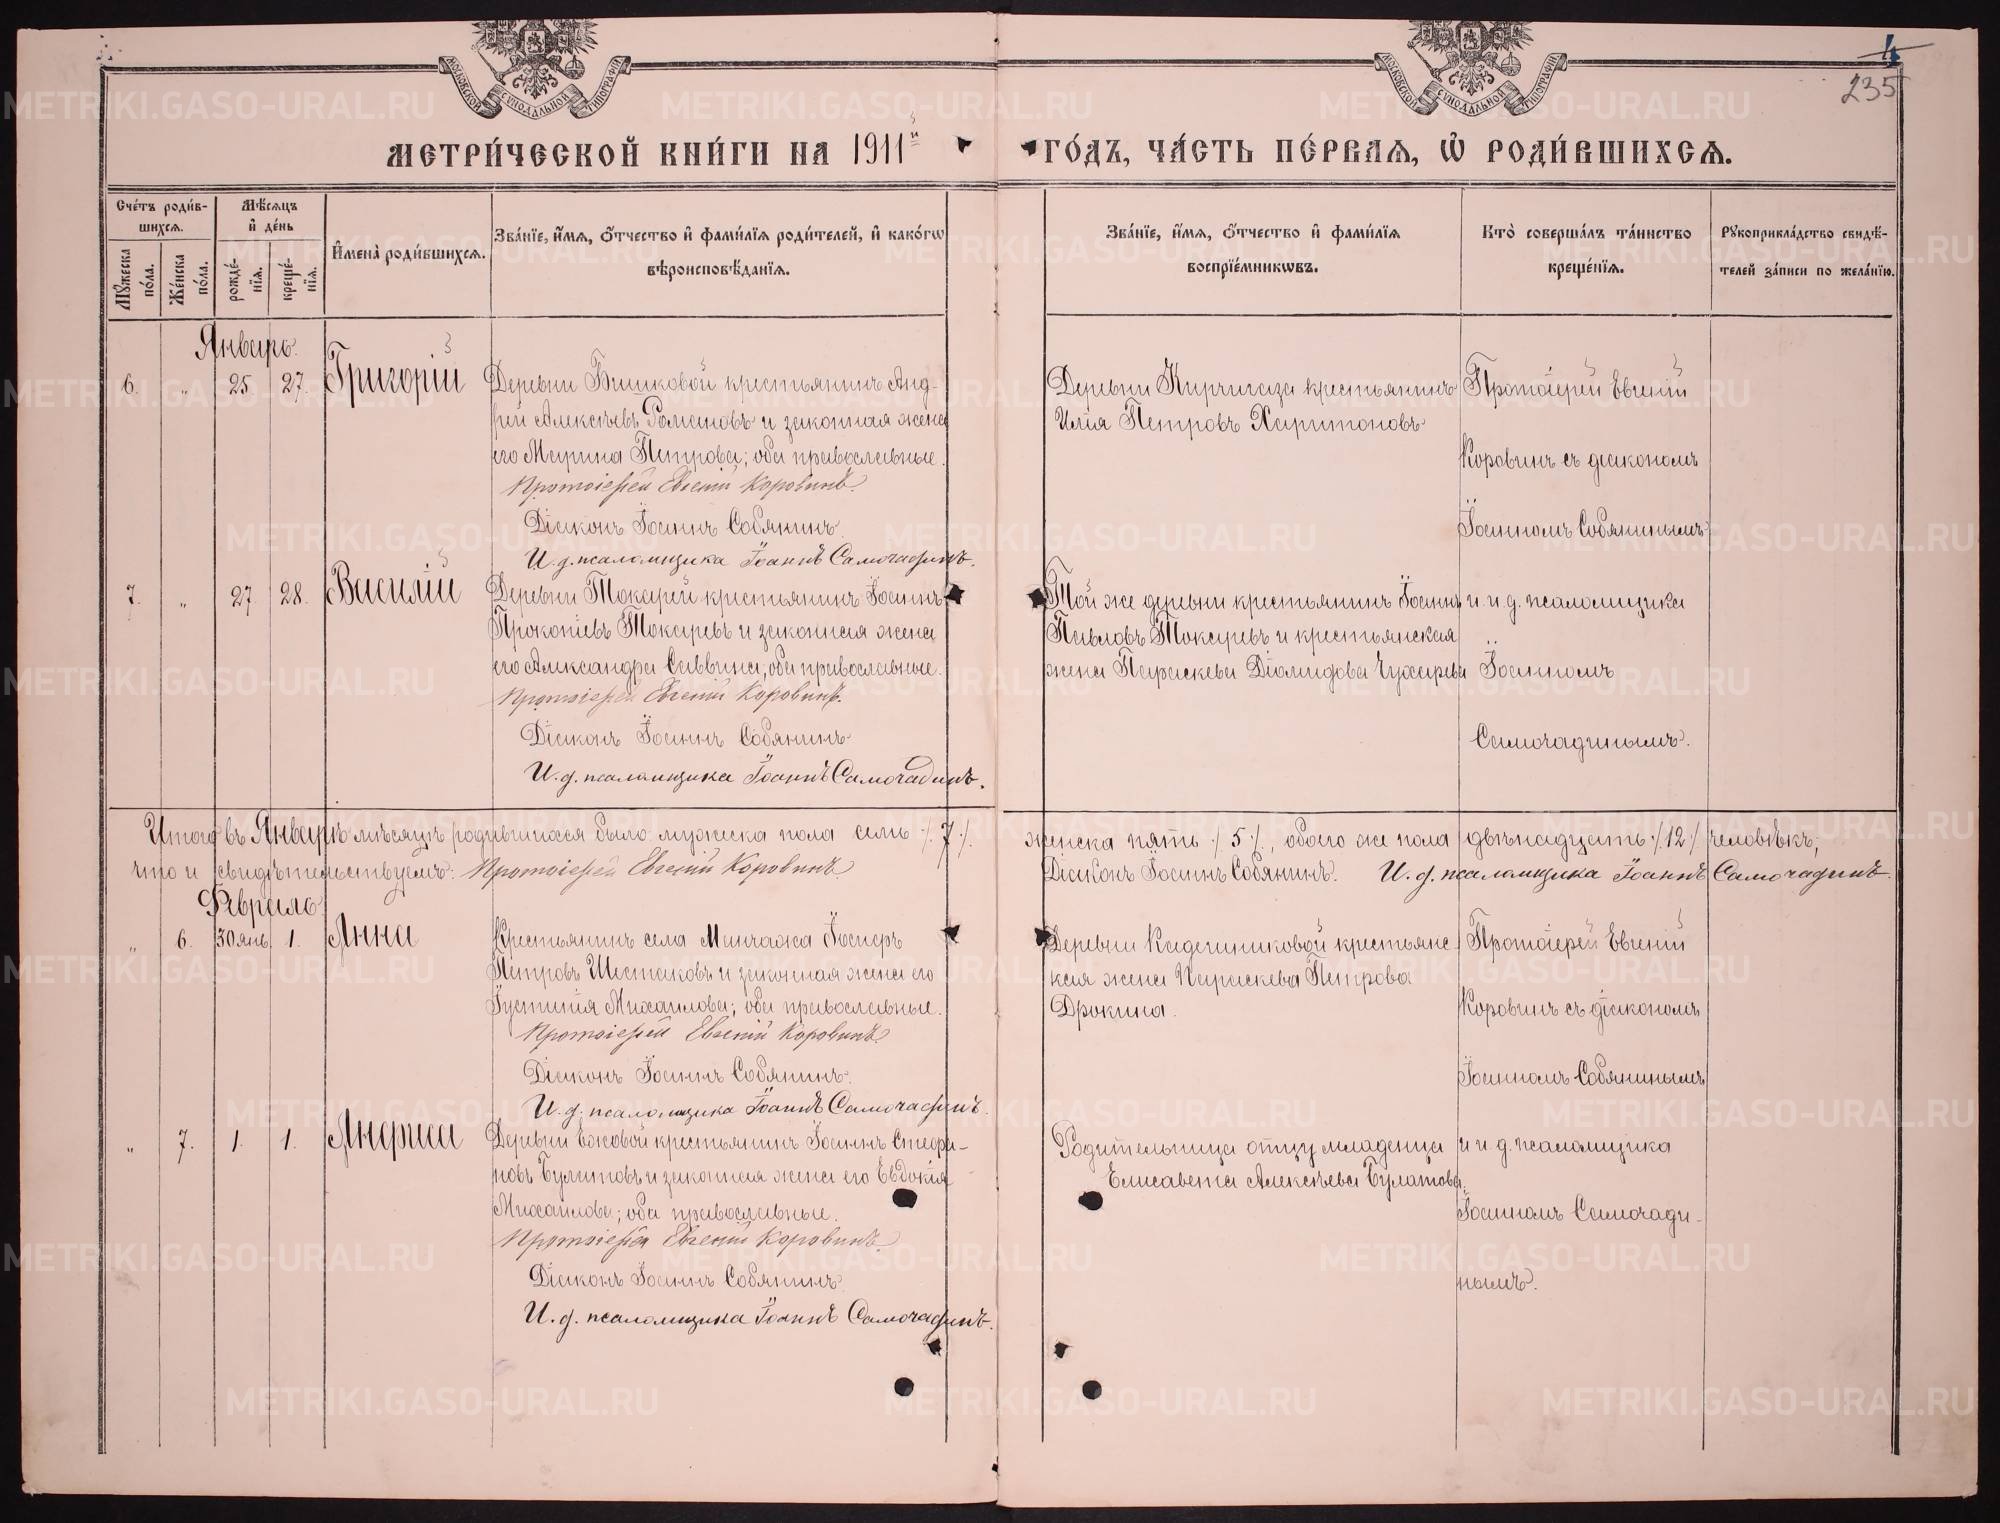 МОСКОВСКОЙ СУНОДАЛЬНОЙ ТИПОГРАФІИ
МОСКОВСКОЙ СУНОДАЛЬНОЙ ТИПОГРАФІИ
4
235
МЕТРИ́ЧЕСКОЙ КНИ́ГИ НА 1911й ГО́ДЪ, ЧА́СТЬ ПЕ́РВАѦ, Ѡ҆ РОДИ́ВШИХСѦ.
Сче́тъ роди́в-
шихсѧ.
Мꙋ́жеска по́ла.
Же́нска по́ла.
Мѣ́сѧцъ
и҆ де́нь
рожде́-
нїѧ.
креще́-
нїѧ.
И҆мена̀ роди́вшихсѧ.
Зва́нїе, и҆́мѧ, ѻ҆́тчество и҆ фами́лїѧ роди́телей, и҆ како́гѡ
вѣроисповѣ́данїѧ.
Зва́нїе, и҆́мѧ, ѻ҆́тчество и҆ фами́лїѧ
воспрїе́мникѡвъ.
Кто̀ соверша́лъ та́инство
креще́нїѧ.
Рꙋкоприкла́дство свидѣ́-
телей за́писи по жела́нїю.
Январь.
6. „ 25 27. Григорій
Деревни Бишковой крестьянинъ Анд-
рей Алексѣевъ Романовъ и законная жена
его Марина Петрова; оба православные.
Протоіерей Евгеній Коровинъ.
Діаконъ Іоаннъ Собянинъ.
И. д. псаломщика Іоаннъ Самочадинъ.
Деревни Киргишаза крестьянинъ
Илія Петровъ Харитоновъ
Протоіерей Евгеній
Коровинъ съ діакономъ
Іоанномъ Собянинымъ
7. „ 27 28. Василій
Деревни Токарей крестьянинъ Іоаннъ
Прокопіевъ Токаревъ и законная жена
его Александра Саввина; оба православные.
Протоіерей Евгеній Коровинъ.
Діаконъ Іоаннъ Собянинъ
И. д. псаломщика Іоаннъ Самочадинъ.
Той же деревни крестьянинъ Іоаннъ
Павловъ Токаревъ и крестьянская
жена Параскева Діомидова Чухарева
и и. д. псаломщика
Іоанномъ
Самочадинымъ.
Итого въ Январѣ мѣсяцѣ родившихся было мужеска пола семь ·/. 7 ·/. женска пять ·/. 5 ·/., обоего же пола двѣнадцать ·/. 12 ·/. человѣкъ;
что и свидѣтельствуемъ: Протоіерей Евгеній Коровинъ. Діаконъ Іоаннъ Собянинъ. И. д. псаломщика Іоаннъ Самочадинъ.
Февраль
„ 6. 30 янв. 1. Анна
Крестьянинъ села Минчажа Іосифъ
Петровъ Шестаковъ и законная жена его
Іустинія Михаилова; оба православные.
Протоіерей Евгеній Коровинъ.
Діаконъ Іоаннъ Собянинъ.
И. д. псаломщика Іоаннъ Самочадинъ.
Деревни Кадешниковой крестьянс-
кая жена Параскева Петрова
Дрокина.
Протоіерей Евгеній
Коровинъ съ діакономъ
Іоанномъ Собянинымъ
„ 7. 1. 1. Анфиса
Деревни Ековой крестьянинъ Іоаннъ Стефа-
новъ Булатовъ и законная жена его Евдокія
Михаилова; оба православные.
Протоіерей Евгеній Коровинъ.
Діаконъ Іоаннъ Собянинъ
И. д. псаломщика Іоаннъ Самочадинъ.
Родительница отцу младенца
Елисавета Алексѣева Булатова.
и и. д. псаломщика
Іоанномъ Самочади-
нымъ.
METRIKI.GASO-URAL.RU